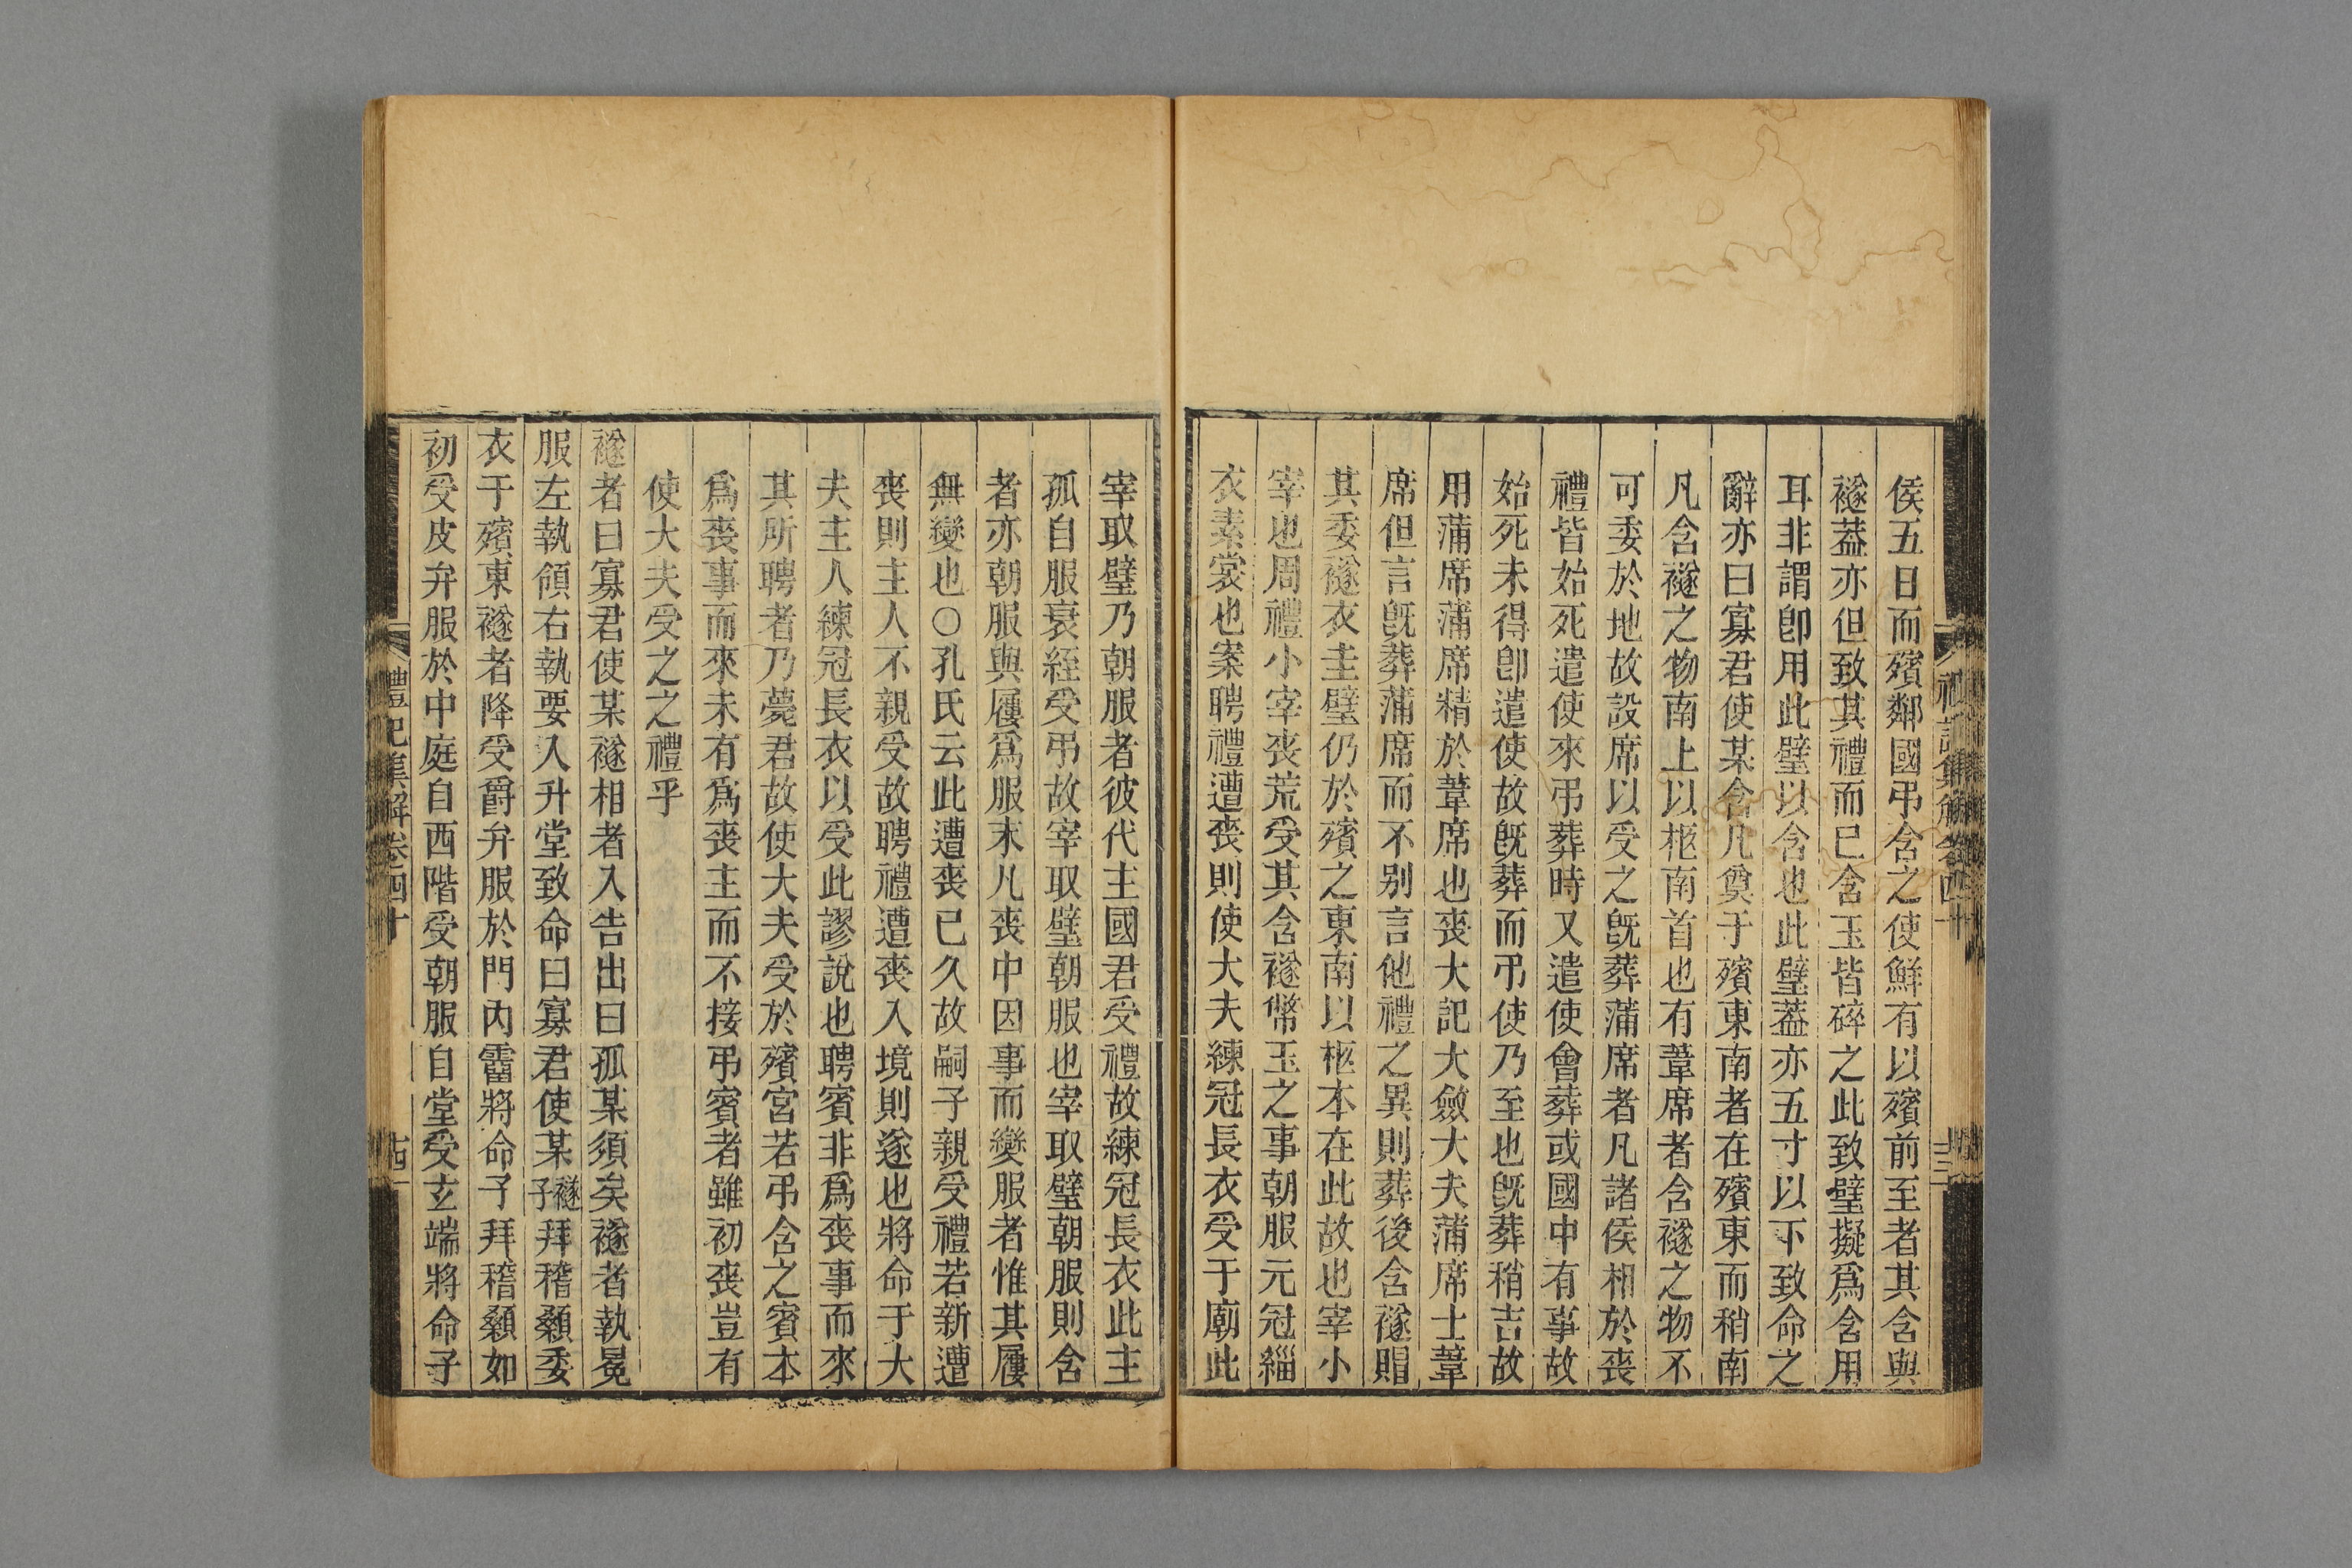 侯五日而殯鄰國弔含之使鮮有以殯前至者其含與
襚葢亦但致其禮而已含玉皆碎之此致璧擬爲含用
耳非謂卽用此璧以含也此璧葢亦五寸以下致命之
辭亦曰寡君使某含凡奠于殯東南者在殯東而稍南
凡含襚之物南上以柩南首也有葦席者含襚之物不
可委於地故設席以受之旣葬蒲席者凡諸侯相於喪
禮皆始死遣使來弔葬時又遣使會葬或國中有事故
始死未得卽遣使故旣葬而弔使乃至也旣葬稍吉故
用蒲席蒲席精於葦席也喪大記大斂大夫蒲席士葦
席但言旣葬蒲席而不別言他禮之異則葬後含襚賵
其委襚衣圭璧仍於殯之東南以柩本在此故也宰小
宰也周禮小宰喪荒受其含襚幣玉之事朝服元冠緇
衣素裳也案聘禮遭喪則使大夫練冠長衣受于廟此
宰取璧乃朝服者彼代主國君受禮故練冠長衣此主
孤自服衰絰受弔故宰取璧朝服也宰取璧朝服則含
者亦朝服與屨爲服末凡喪中因事而變服者惟其屨
無變也○孔氏云此遭喪已久故嗣子親受禮若新遭
喪則主人不親受故聘禮遭喪入境則遂也將命于大
夫主人練冠長衣以受此謬說也聘賓非爲喪事而來
其所聘者乃薨君故使大夫受於殯宮若弔含之賓本
爲喪事而來未有爲喪主而不接弔賓者雖初喪豈有
使大夫受之之禮乎
襚者曰寡君使某襚相者入告出曰孤某須矣襚者執冕
服左執領右執要入升堂致命曰寡君使某襚子拜稽顙委
衣于殯東襚者降受爵弁服於門內霤將命子拜稽顙如
初受皮弁服於中庭自西階受朝服自堂受玄端將命子
禮記集解卷四十
十四